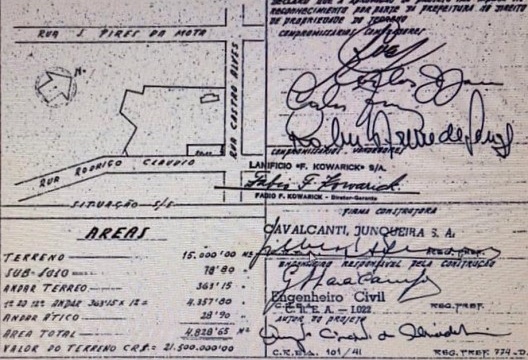 RECONHECIMENTO POR PARTE DA PREFEITURA DO DIREITO
DE PROPRIEDADE DO TERRENO
COMPROMISSARIOS COMPRADORES
RUA S. PIRES DA MOTA
N.
RUA CASTRO ALVES
RUA RODRIGO CLAUDIO
SITUAÇÃO S/E
COMPROMISSARIOS - VENDEDORES
LANIFICIO "F. KOWARICK" S/A.
Fabio F. Kowarick
FABIO F. KOWARICK - Diretor-Gerente
FIRMA CONSTRUTORA
CAVALCANTI, JUNQUEIRA S. A.
REG. PREF.
ENGENHEIRO RESPONSAVEL PELA CONSTRUÇÃO
Engenheiro Civil
C. R. E. A. - 1022
REG. PREF.
AUTOR DO PROJETO
C.R.E.A. 101/41
REG. PREF. 774
AREAS
TERRENO 15.000'00 M2
SUB-SOLO 78'80 "
ANDAR TERREO 363'15 "
1º AO 12º ANDAR 363'15 X 12 = 4.357'80 "
ANDAR ÁTICO 28'90 "
ÁREA TOTAL 4.828'65 M2
VALOR DO TERRENO CR$: 21.500.000'00